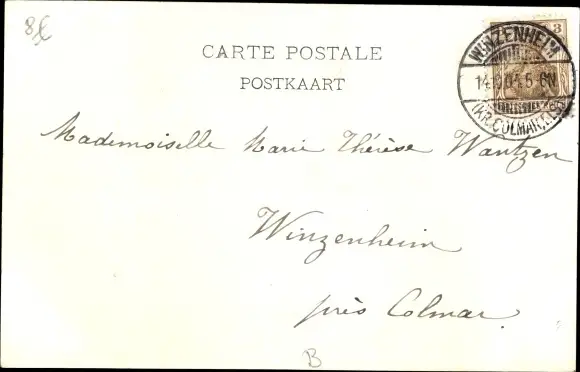 8£
3
CARTE POSTALE
POSTKAART
WINZENHEIM
5-6N
(KR.COLMAR,ELS)
Mademoiselle Marie Thérèse Wantzen
Winzenheim
près Colmar.
B